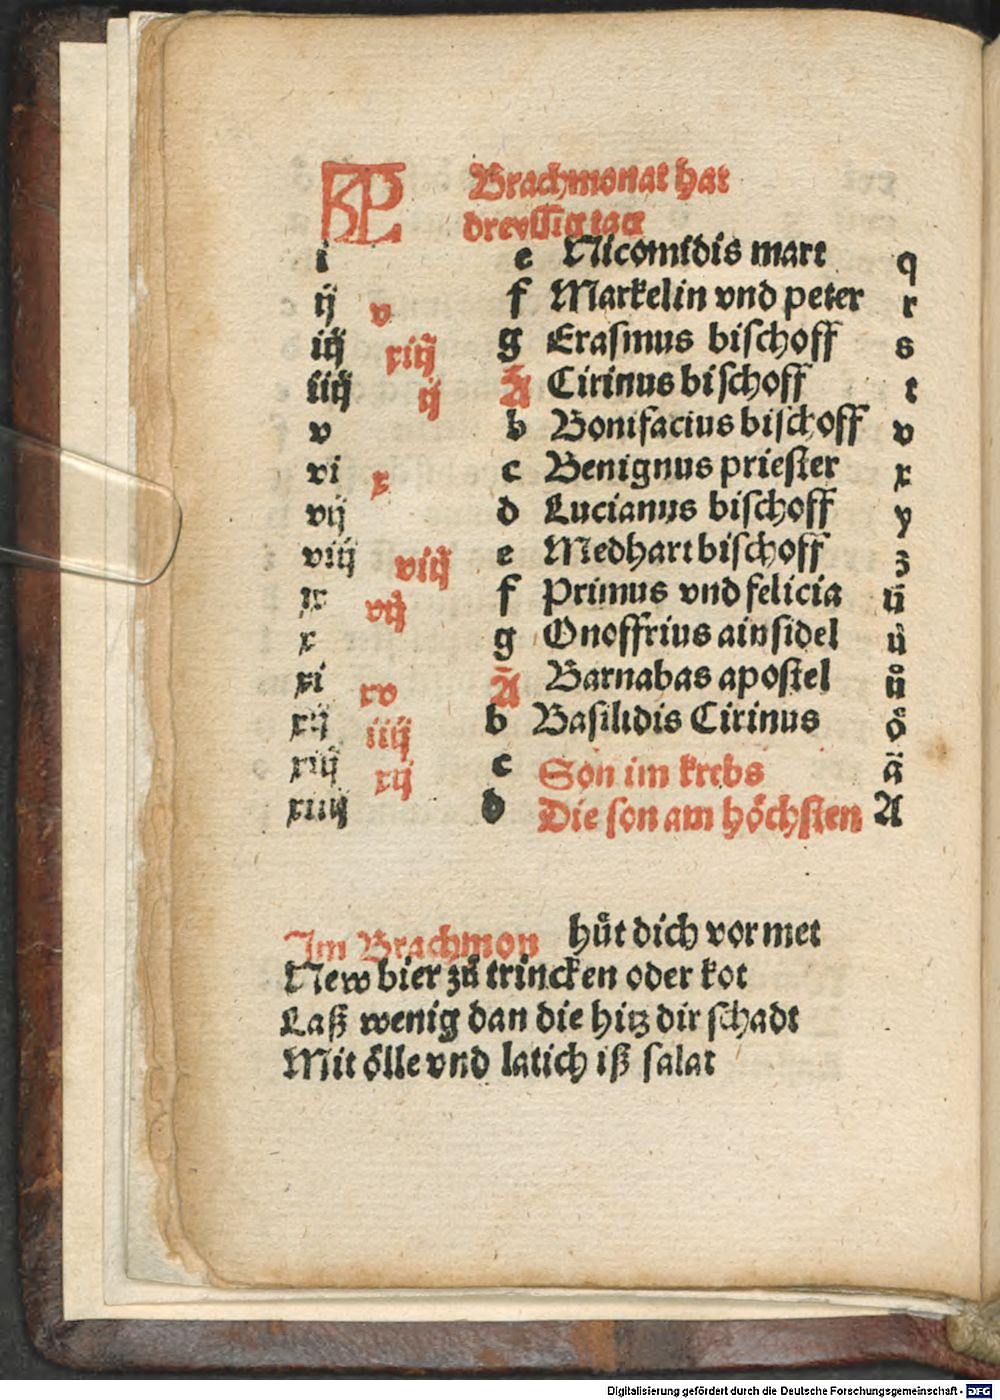 KL Brachmonat hat
dreyssig tag
i e Nicomidis mart q
ij v f Markelin vnd peter r
iij xiij g Erasmus bischoff s
iiij ij A Cirinus bischoff t
v b Bonifacius bischoff v
vi x c Benignus priester x
vij d Lucianus bischoff y
viij viij e Medhart bischoff z
ix vij f Primus vnd felicia ü
x g Onoffrius ainsidel ů
xi xv A Barnabas apostel ů
xij iiij b Basilidis Cirinus ö
xiij xij c Son im krebs ä
xiiij d Die son am höchsten A
Im Brachmon hůt dich vor met
New bier zů trincken oder kot
Laß wenig dan die hitz dir schadt
Mit ölle vnd latich iß salat
Digitalisierung gefördert durch die Deutsche Forschungsgemeinschaft - DFG